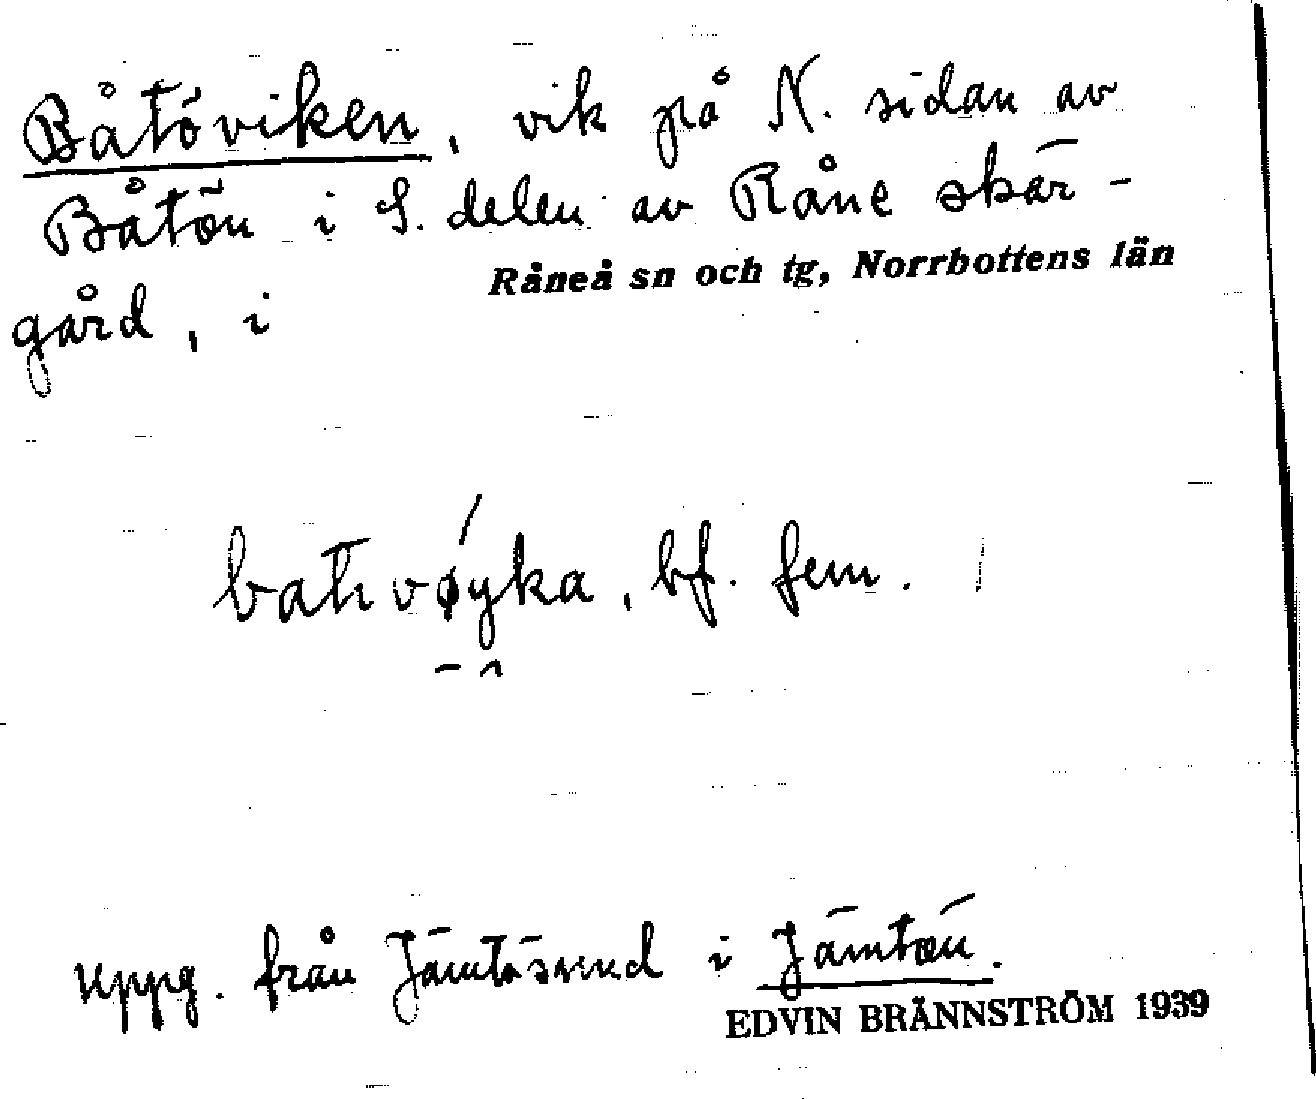 Båtöviken, vik på N. sidan av
Båtön i S. delen av Råne skär-
gård, i
Råneå sn och tg, Norrbottens län
batıvǿyka, bf. fem.
uppg. från Jämtösund i Jämtön.
EDVIN BRÄNNSTRÖM 1939